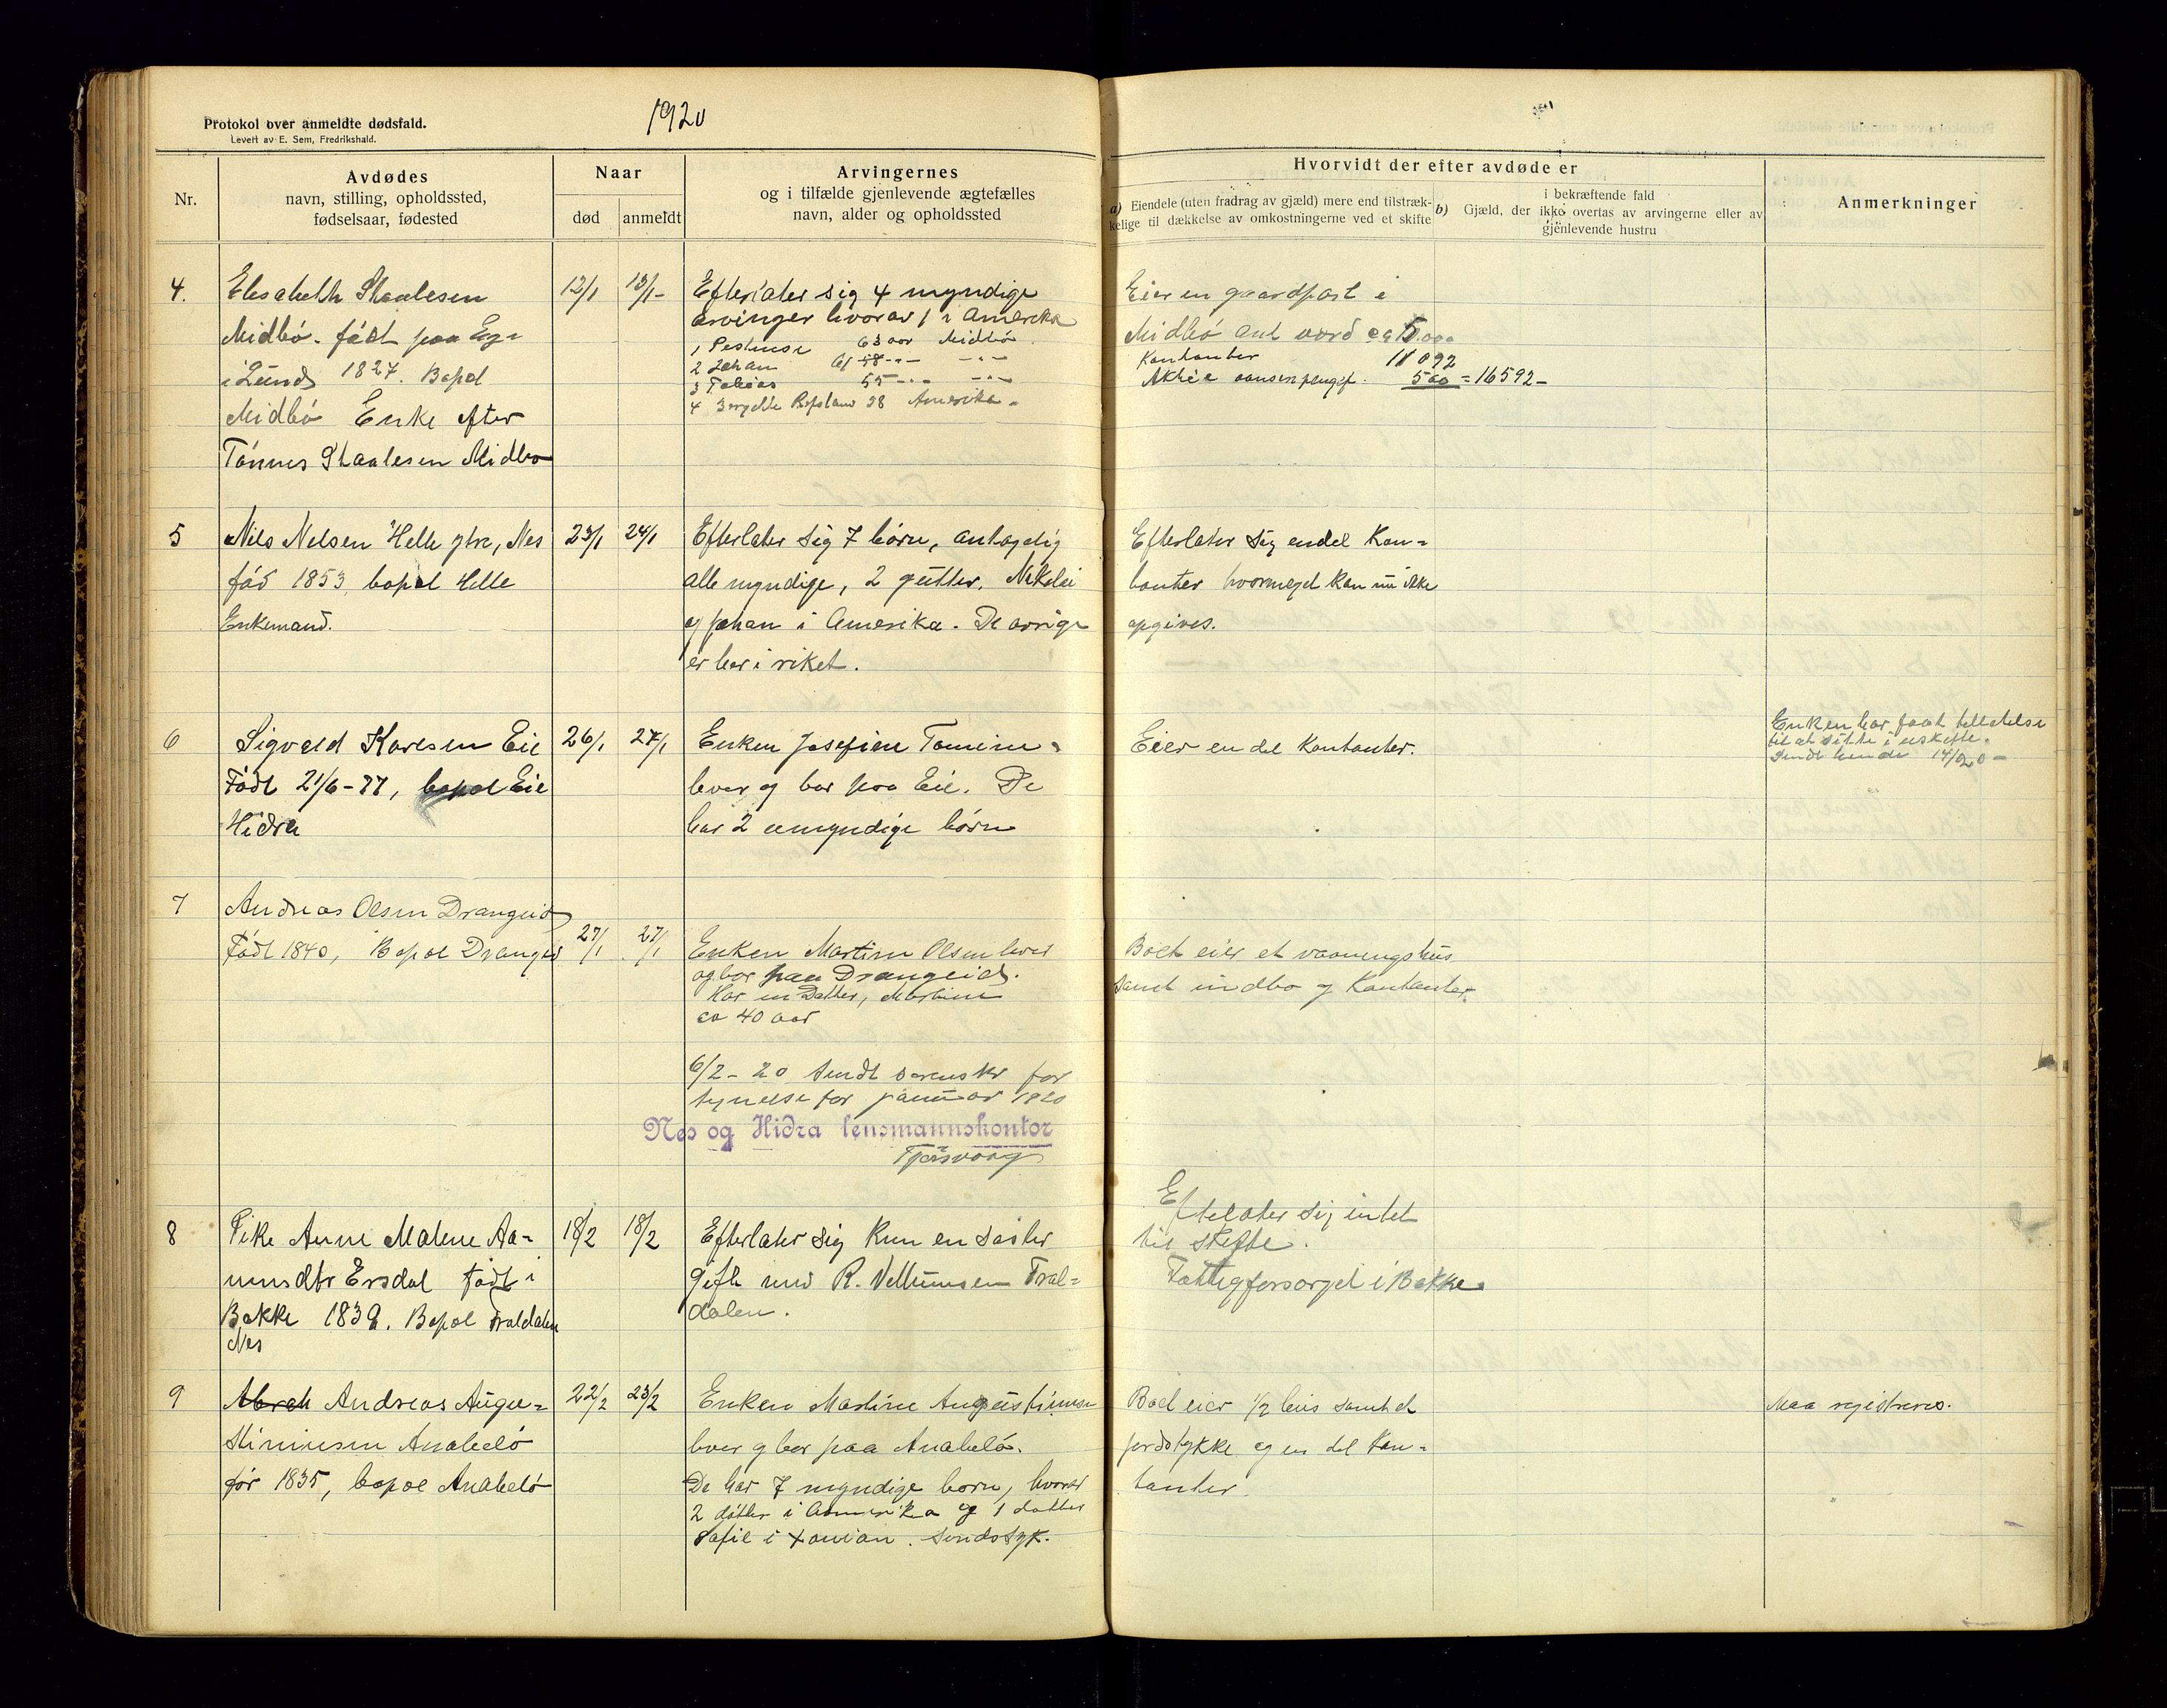 Protokol over anmeldte dødsfald.
Levert av E. Sem, Fredrikshald.
1920
Nr.
Avdødes
navn, stilling, opholdssted,
fødselsaar, fødested
Naar
død
anmeldt
Arvingernes
og i tilfælde gjenlevende ægtefælles
navn, alder og opholdssted
Hvorvidt der efter avdøde er
a) Eiendele (uten fradrag av gjæld) mere end tilstræk-
kelige til dækkelse av omkostningerne ved et skifte
b) Gjæld, der i bekræftende fald
ikke overtas av arvingerne eller av
gjenlevende hustru
Anmerkninger
4.
Elisabeth Staalesen
Midbö. född paa Eg-
i Lund 1827. Bopel
Midbö Enke efter
Tönnes Staalesen Midbo
12/1
13/1-
Efterlater sig 4 myndige
arvinger hvorav 1 i Amerika
1 63 aar Midbö
2 Johan 61 58 -"- -"-
3 Tobias 55 -"- -"-
4 38 Amerika
Eier en gaardpart i
Midbö ant værd ca 5.000
Kontanter 11 092
Aktie 500 = 16592-
5
Nils Nelsen Helle ytre, Nes
föd 1853, bopel Helle
Enkemand.
23/1
24/1
Efterlater sig 7 börn, antagelig
alle myndige, 2 gutter, Nikolai
og Johan i Amerika. De övrige
er her i riket.
Efterlater sig endel Kon-
tanter hvormeget kan nu ikke
opgives.
6
Sigvald Karlsen Eie
Född 21/6-77, bopel Eie
Hidra
26/1
27/1
Enken Josefine Tomine
lever og bor paa Eie. De
har 2 umyndige börn
Eier en del Kontanter.
Enken har faat tilladelse
til at sitte i uskifte.
Sendt hende 14/2 20 -
7
Andreas Olsen Drangeid
Född 1840, Bopel Drangeid
27/1
27/1
Enken Martine Olsen lever
og bor paa Drangeid.
Har en Datter, Martine
ca 40 aar
Boet eier et vaaningshus
samt indbo og Kontanter
6/2-20 Sendt sorenskr for
tegnelse for januar 1920
Nes og Hidra lensmannskontor
8
Pike Anne Malene Aa-
munsdtr Ersdal född i
Bakke 1839. Bopel Fraldalen
Nes
18/2
18/2
Efterlater sig kun en söster
gift med R. Vellumsen Fral-
dalen.
Eftelater sig intet
til skifte.
Fattigforsörget i Bakke
9
Abrah Andreas Augu-
stinusen Anabelö
för 1835, bopel Anabelö
22/2
23/2
Enken Martine Augustinusen
lever og bor paa Anabelö.
De har 7 myndige born, hvorav
2 dötter i Amerika og 1 datter
Sofie i
Boet eier 1/2 hus samt et
jordstykke og en del Kon-
tanter.
Maa registreres.